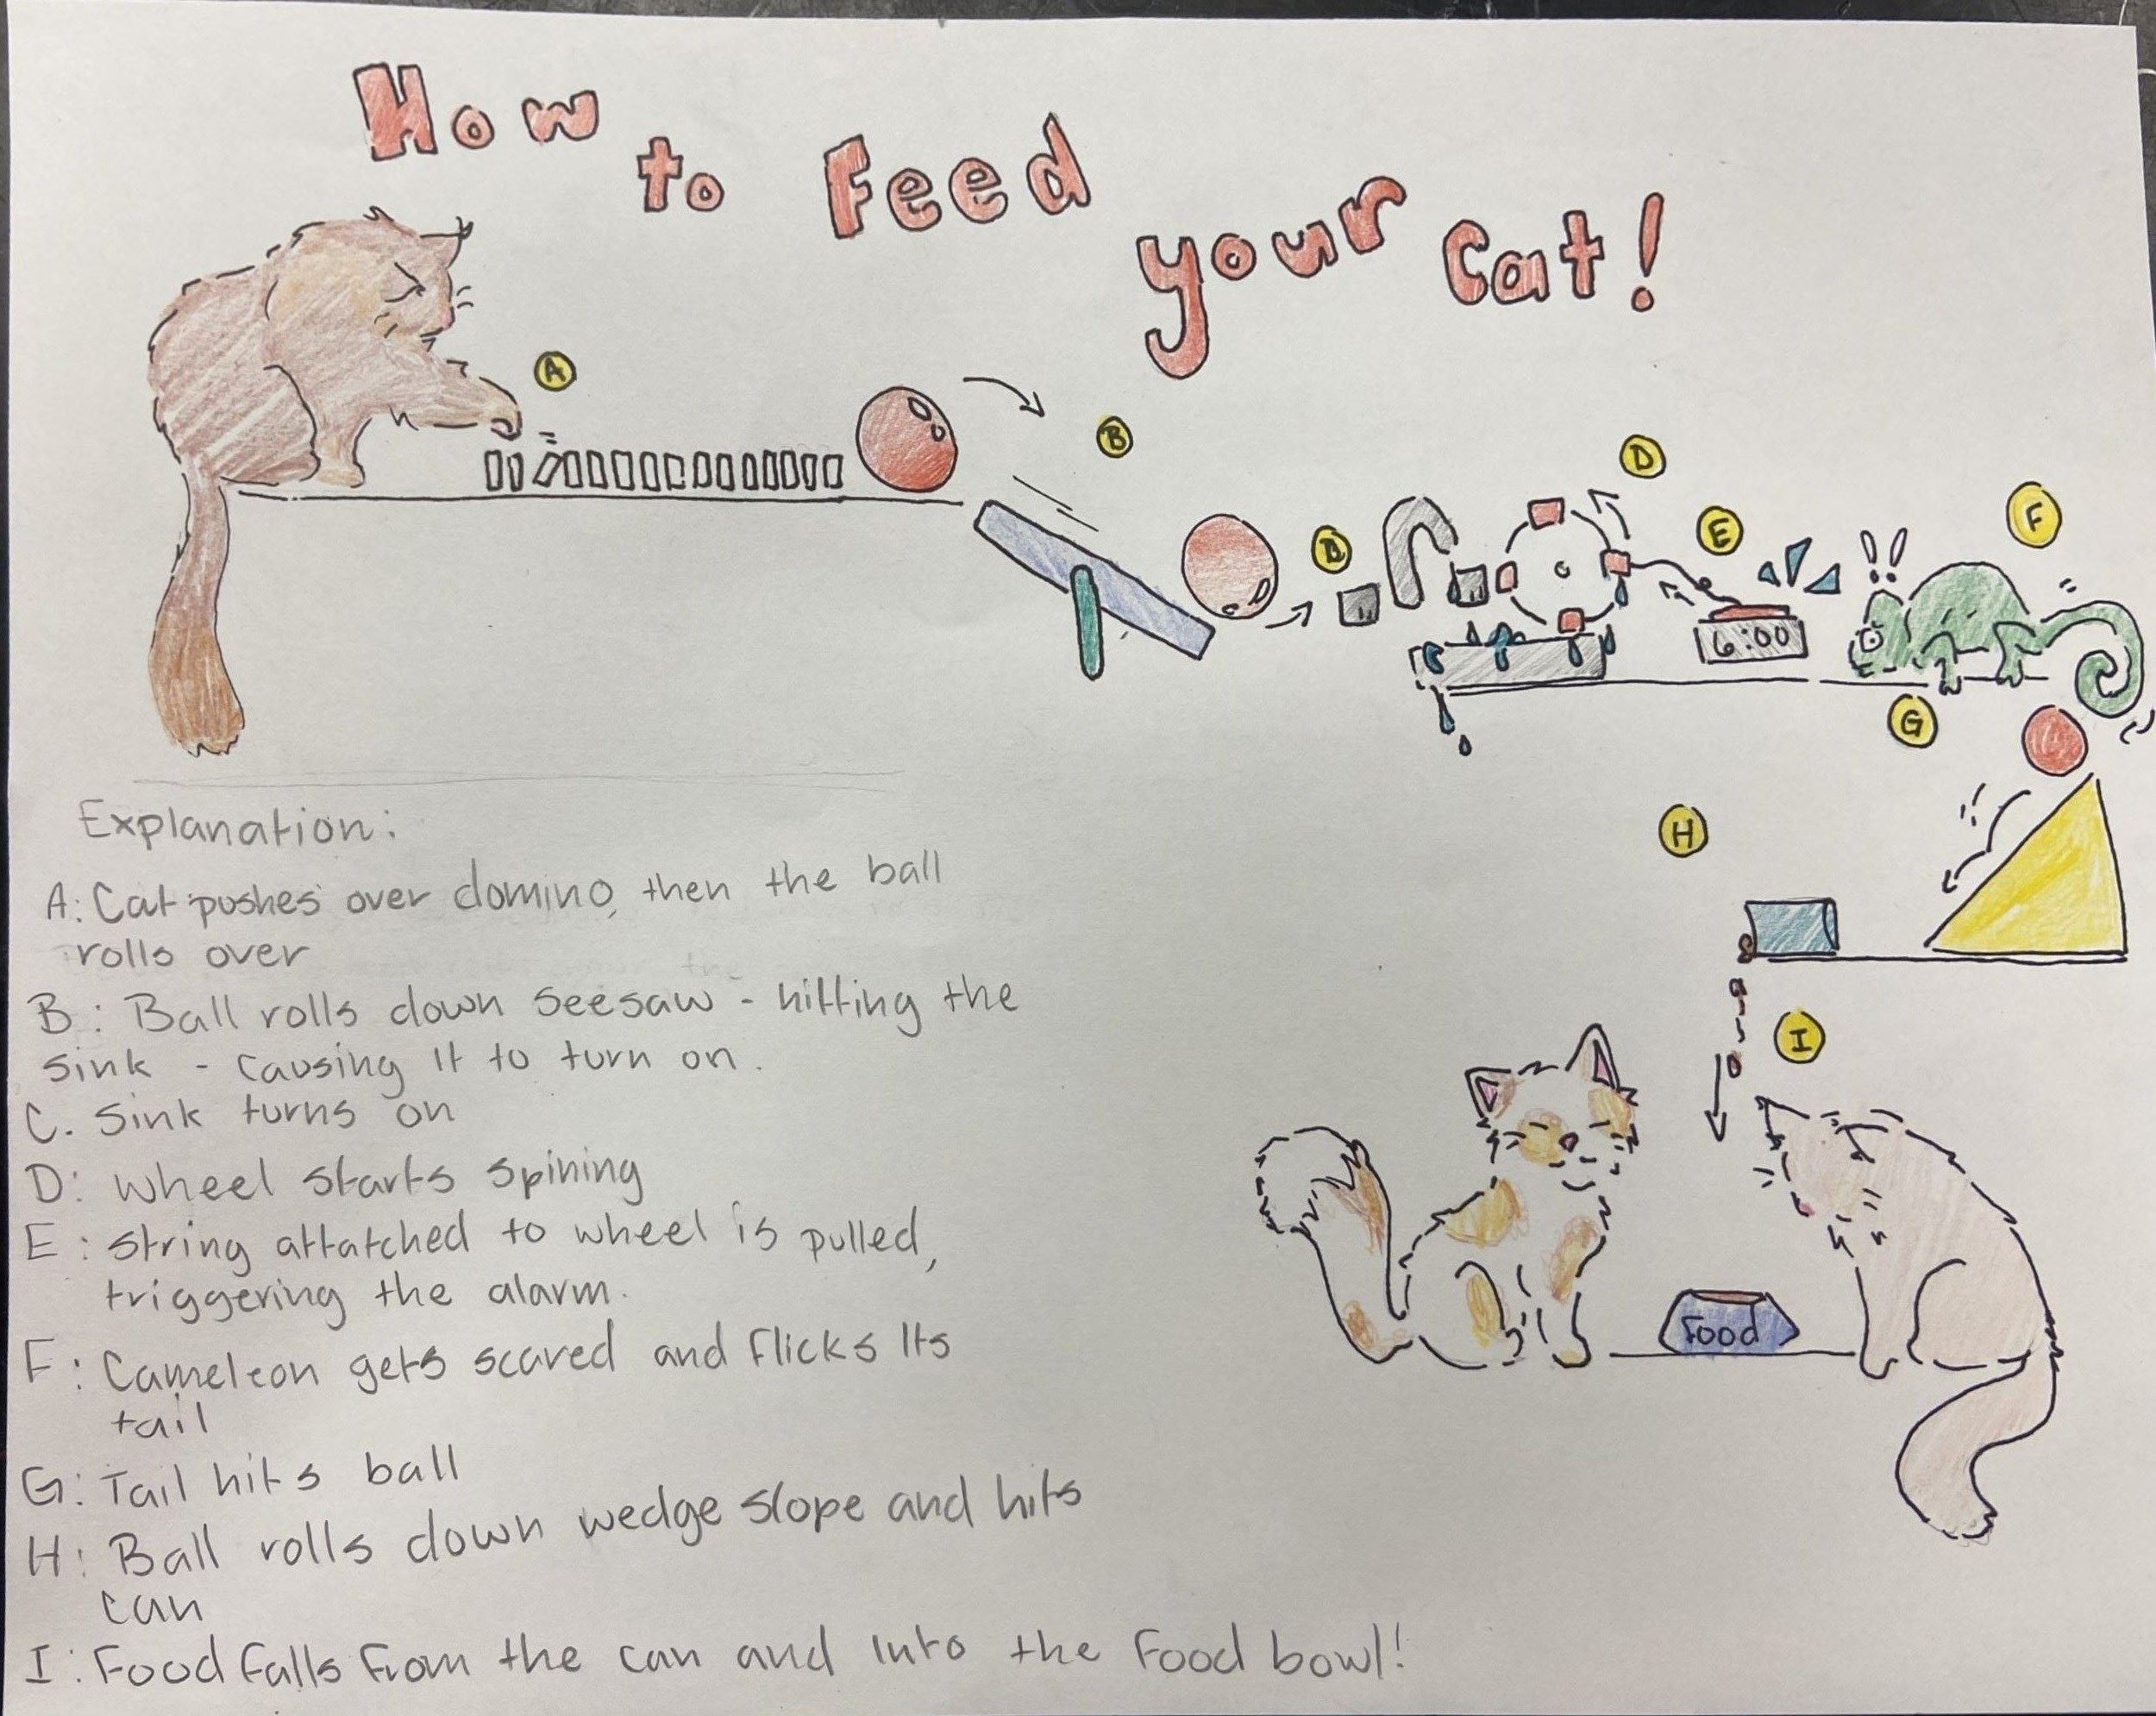 How to Feed your Cat!
A
B
B
D
E
F
6:00
G
H
I
Food
Explanation:
A: Cat pushes over domino, then the ball
rolls over
B: Ball rolls down seesaw - hitting the
sink - causing it to turn on.
C. Sink turns on
D: Wheel starts spining
E: String attatched to wheel is pulled,
triggering the alarm.
F: Cameleon gets scared and flicks Its
tail
G: Tail hits ball
H: Ball rolls down wedge slope and hits
can
I: Food falls from the can and into the food bowl!